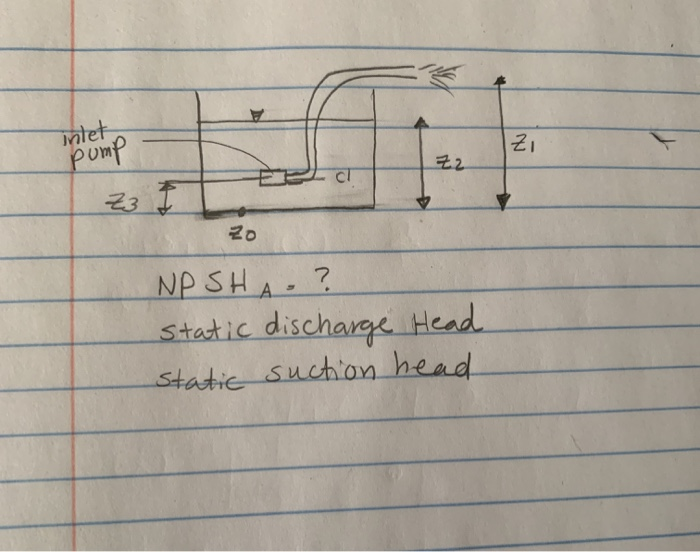 inlet
pump
Z1
Z2
cl
Z3
Z0
NPSH A = ?
static discharge Head
static suction head